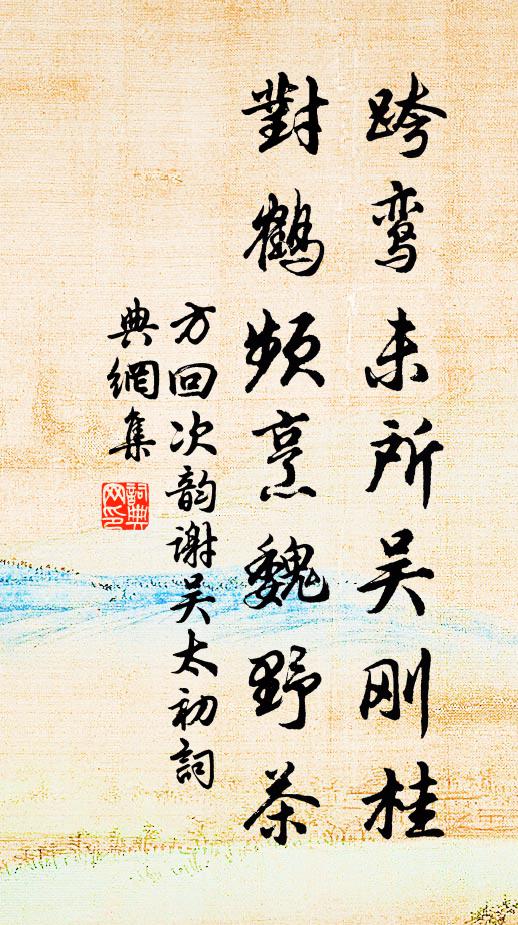 跨鸾未所吴刚桂
對鶴頻烹魏野茶
方回次韵谢吴太初詞
典網集
詞典
网印